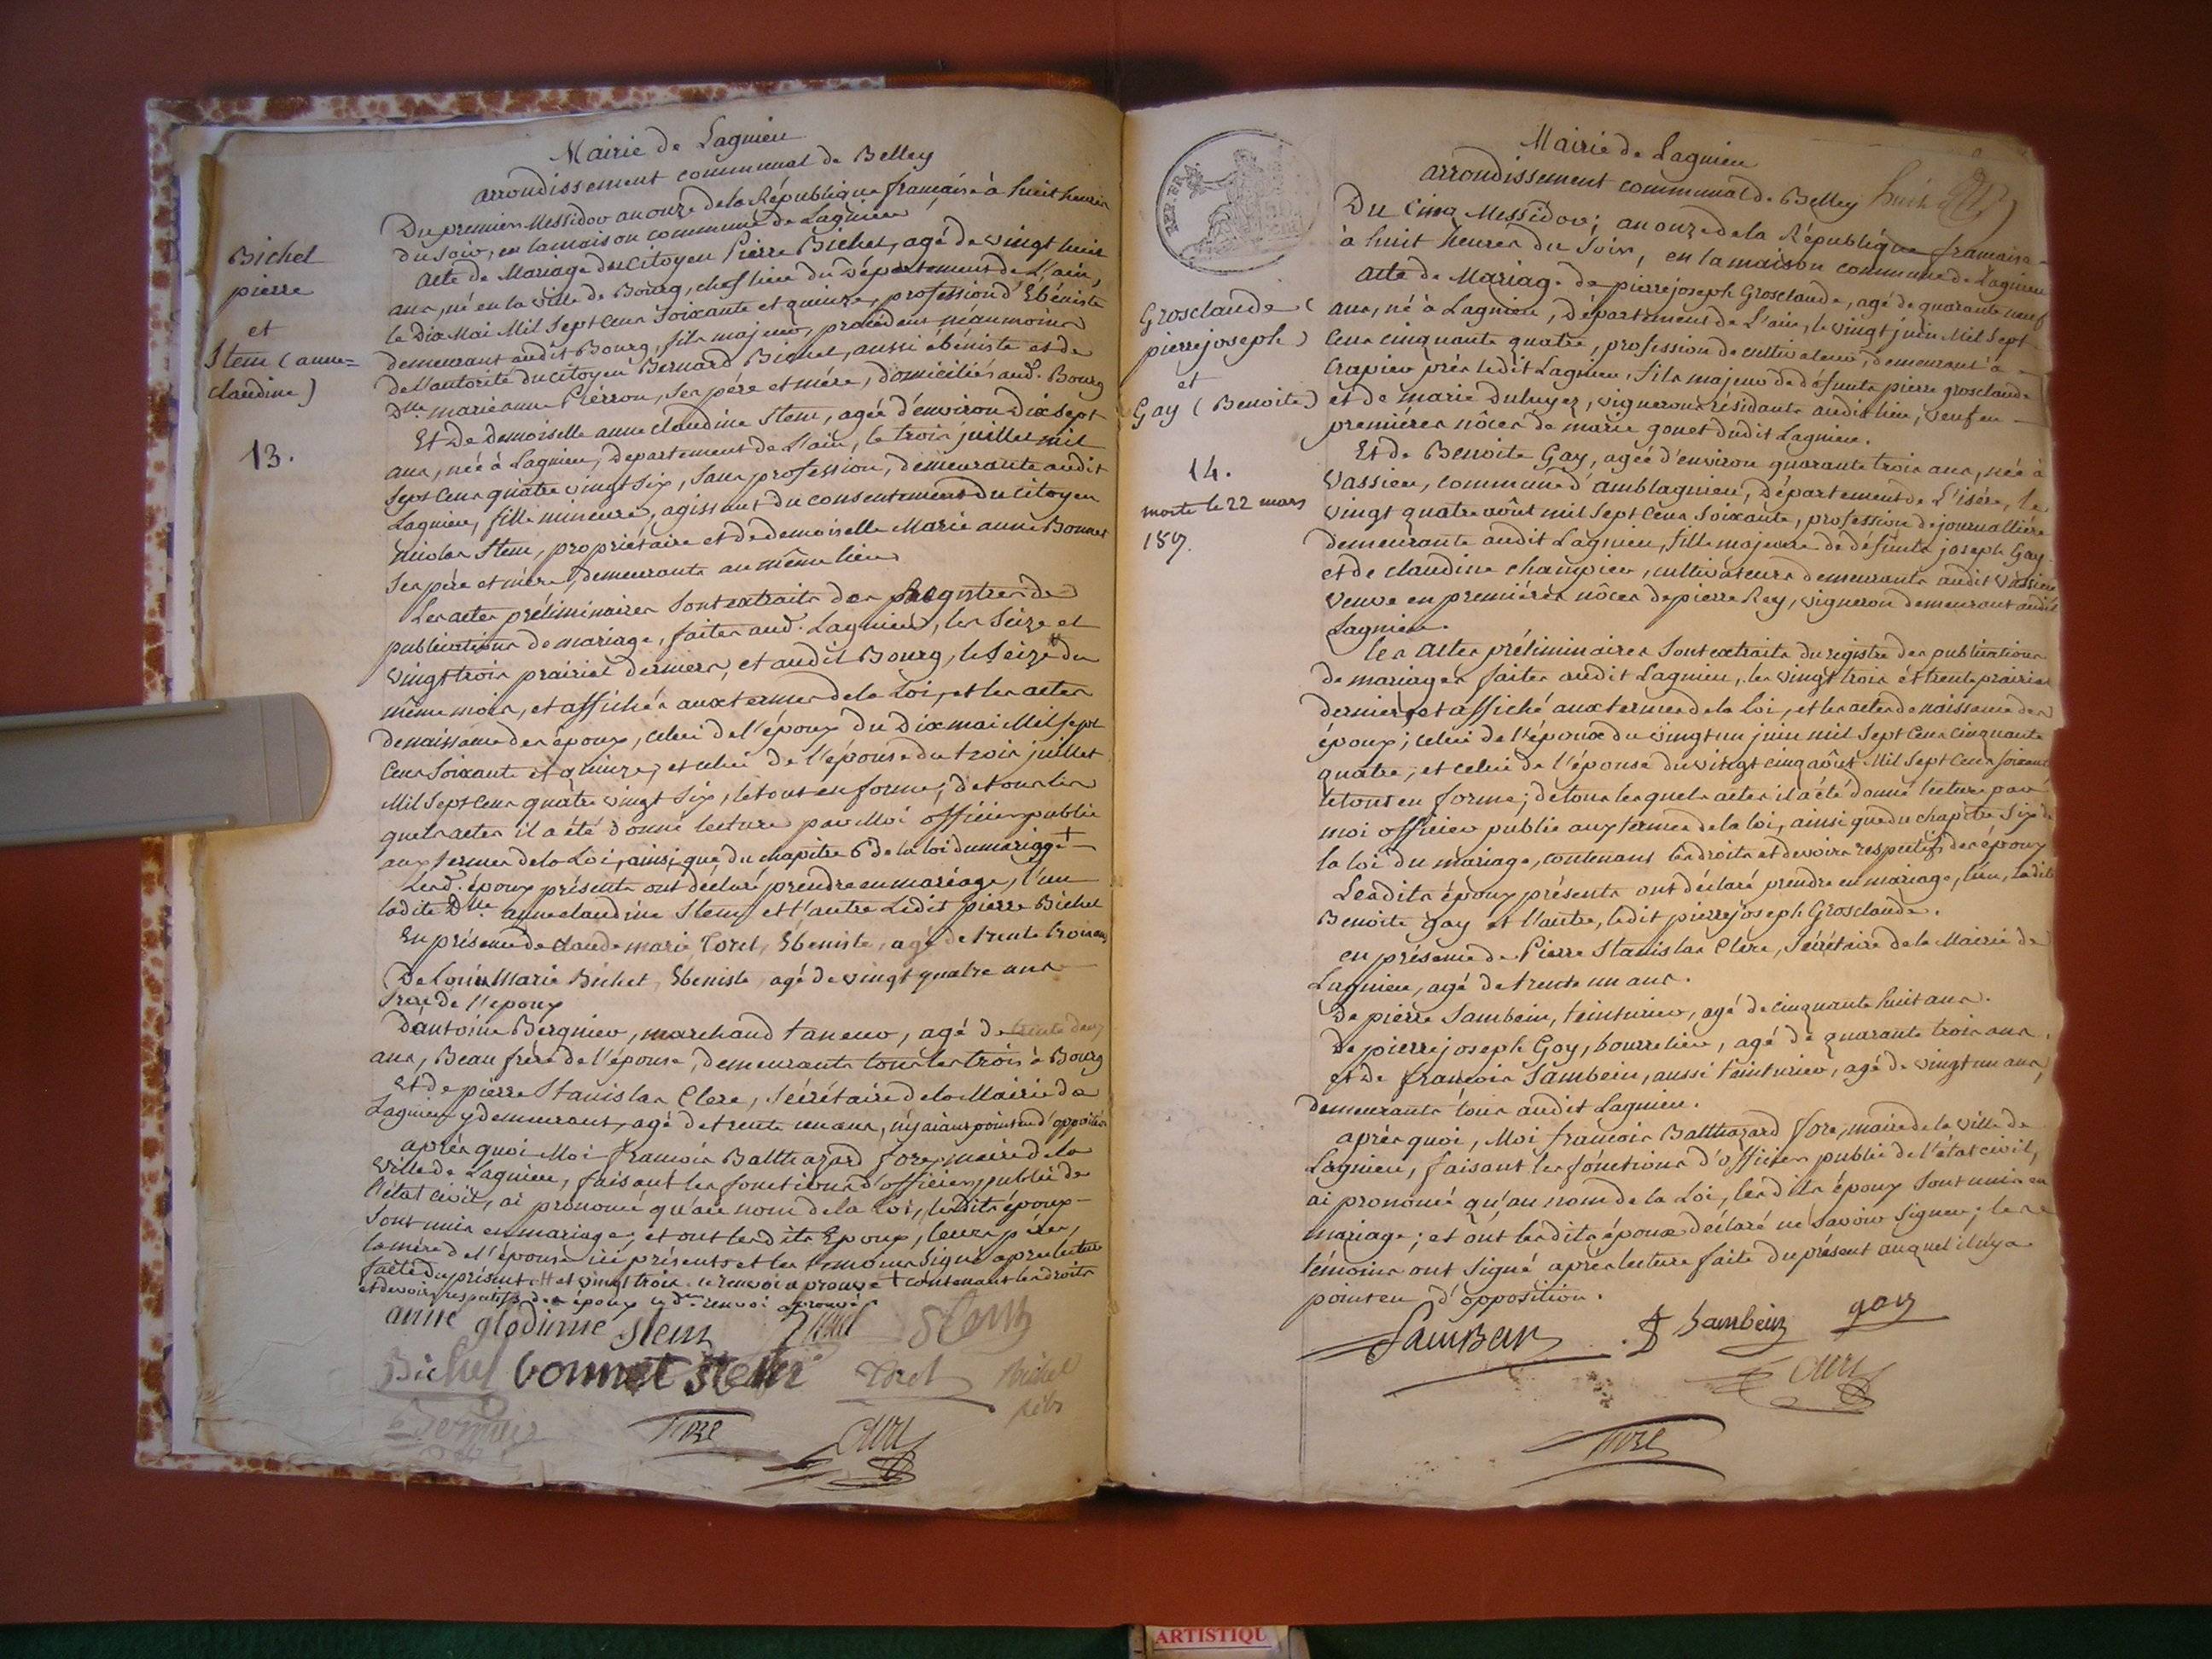 Mairie de Lagnieu
arrondissement communal de Belley
Du premier Messidor an onze de la République française à huit heures
du soir, en la maison commune de Lagnieu
Acte de Mariage du Citoyen Pierre Bichet, agé de vingt huit
ans, né en la ville de Bourg, chef lieu du Département de l'ain,
le Dix Mai Mil Sept Cens Soixante et quinze, profession d'Ebéniste
demeurant audit Bourg, fils majeur, procédant néanmoins
de l'autorité du citoyen Bernard Bichet, aussi ébéniste et de
Dlle marieanne Pièrron, ses père et mère, domiciliés aud. Bourg
Et de demoiselle anne claudine Stem, agée d'environ Dix sept
ans, née à Lagnieu, département de l'ain, le trois juillet mil
Sept Cens quatre vingt Six, Sans profession, demeurante audit
Lagnieu, fille mineure, agissant du consentement du citoyen
nicolas Stem, propriétaire et de demoiselle Marie anne Bonnet
Ses père et mère, demeurants au même lieu
Les actes préliminaires Sont extraits des Registres de
publications de mariage, faites aud. Lagnieu, les Seize et
vingt trois prairial derniers, et audit Bourg, le Seize du
même mois, et affichés aux termes de la Loi, et les actes
de naissance des époux, celui de l'époux du Dix mai Mil Sept
Cens Soixante et quinze, et celui de l'épouse du trois juillet
Mil Sept Cens quatre vingt Six, le tout en forme; de tous les
quels actes il a été donné lecture par Moi officier public
aux termes de la Loi, ainsi que du chapitre 6 de la loi du mariage +
Lesd. époux présents ont déclaré prendre en mariage, l'un
ladite Dlle anne claudine Stem, et l'autre Ledit pierre Bichet
En présence de claude marie Toret, Ebeniste, agé de trente trois ans
De Louis Marie Bichet, Ebeniste, agé de vingt quatre ans
frère de l'époux
D'antoine Bergnier, marchand taneur, agé de trente deux
ans, Beau frère de l'épouse, demeurants tous les trois à Bourg
Et de pierre Stanislas Clerc, Sécrétaire de la Mairie de
Lagnieu y demeurant, agé de trente un ans, n'y aiant point eu d'opposition
après quoi Moi françois Balthazard fore, maire de la
Ville de Lagnieu, faisant les fonctions d'officier public de
l'état civil, ai prononcé qu'au nom de la Loi, lesdits époux
Sont unis en mariage; et ont lesdits Epoux, leurs pères,
la mère de l'épouse ici présents et les témoins Signé après lecture
faite du présent. # et vingt trois. ce renvoi aprouvé + contenant les droits
et devoirs respectifs des époux. ce dier renvoi aprouvé
anne glodinne Stem Bichet Stem
Bichel bonnet Stem Toret Bichel
fils
fore Clerc
Bichel
pierre
et
Stem (anne=
claudine)
13.
REP. FRA.
Mairie de Lagnieu
arrondissement communal de Belley
Du Cinq Messidor; an onze de la République francaise
à huit heures du Soir, en la maison commune de Lagnieu
Acte de Mariage de pierre joseph Grosclaude, agé de quarante neuf
ans, né à Lagnieu, département de l'ain, le vingt juin Mil Sept
Cens cinquante quatre, profession de cultivateur, demeurant à
Crapieu près ledit Lagnieu, fils majeur de défunts pierre grosclaude
et de marie duluyer, vignerons résidants audit lieu, veuf en
premières nôces de marie gonet dudit Lagnieu.
Et de Benoite Gay, agée d'environ quarante trois ans, née à
Vassieu, commune d'amblagnieu, département de l'isère, le
vingt quatre août mil Sept Cens Soixante, profession de journallière
demeurante audit Lagnieu, fille majeure de défunts joseph Gay
et de claudine champier, cultivateurs demeurants audit Vassieu
Veuve en premières nôces de pierre Rey, vigneron demeurant audit
Lagnieu.
les Actes préliminaires Sont extraits du registre des publications
de mariages faites audit Lagnieu, les vingt trois et trente prairial
derniers et affiché aux termes de la Loi, et les actes de naissance des
époux; celui de l'époux du vingt un juin mil Sept Cens cinquante
quatre; et celui de l'épouse du vingt cinq août Mil Sept Cens Soixante
le tout en forme; de tous lesquels actes il a été donné lecture par
moi officier public aux termes de la loi, ainsi que du chapitre Six de
la loi du mariage, contenant les droits et devoirs respectifs des époux
Lesdits époux présents ont déclaré prendre en mariage, l'un, ladite
Benoite Gay et l'autre, ledit pierre joseph Grosclaude.
en présence de Pierre Stanislas Clerc, Sécrétaire de la Mairie de
Lagnieu, agé de trente un ans.
De pierre Sambein, teinturier, agé de cinquante huit ans.
De pierre joseph Gay, bourrelier, agé de quarante trois ans,
et de françois Sambein, aussi teinturier, agé de vingt un ans,
demeurants tous audit Lagnieu.
après quoi, Moi francois Balthazard fore, maire de la ville de
Lagnieu, faisant les fonctions d'officier public de l'état civil,
ai prononcé qu'au nom de la Loi, lesdits époux Sont unis en
mariage; et ont lesdits époux déclaré ne Savoir Signer; les
témoins ont Signé après lecture faite du présent auquel il n'y a
point eu d'opposition.
Sambein Sambein gay
Clerc
fore
Grosclaude (
pierre joseph)
et
Gay (Benoite)
14.
morte le 22 mars
ARTISTIQU